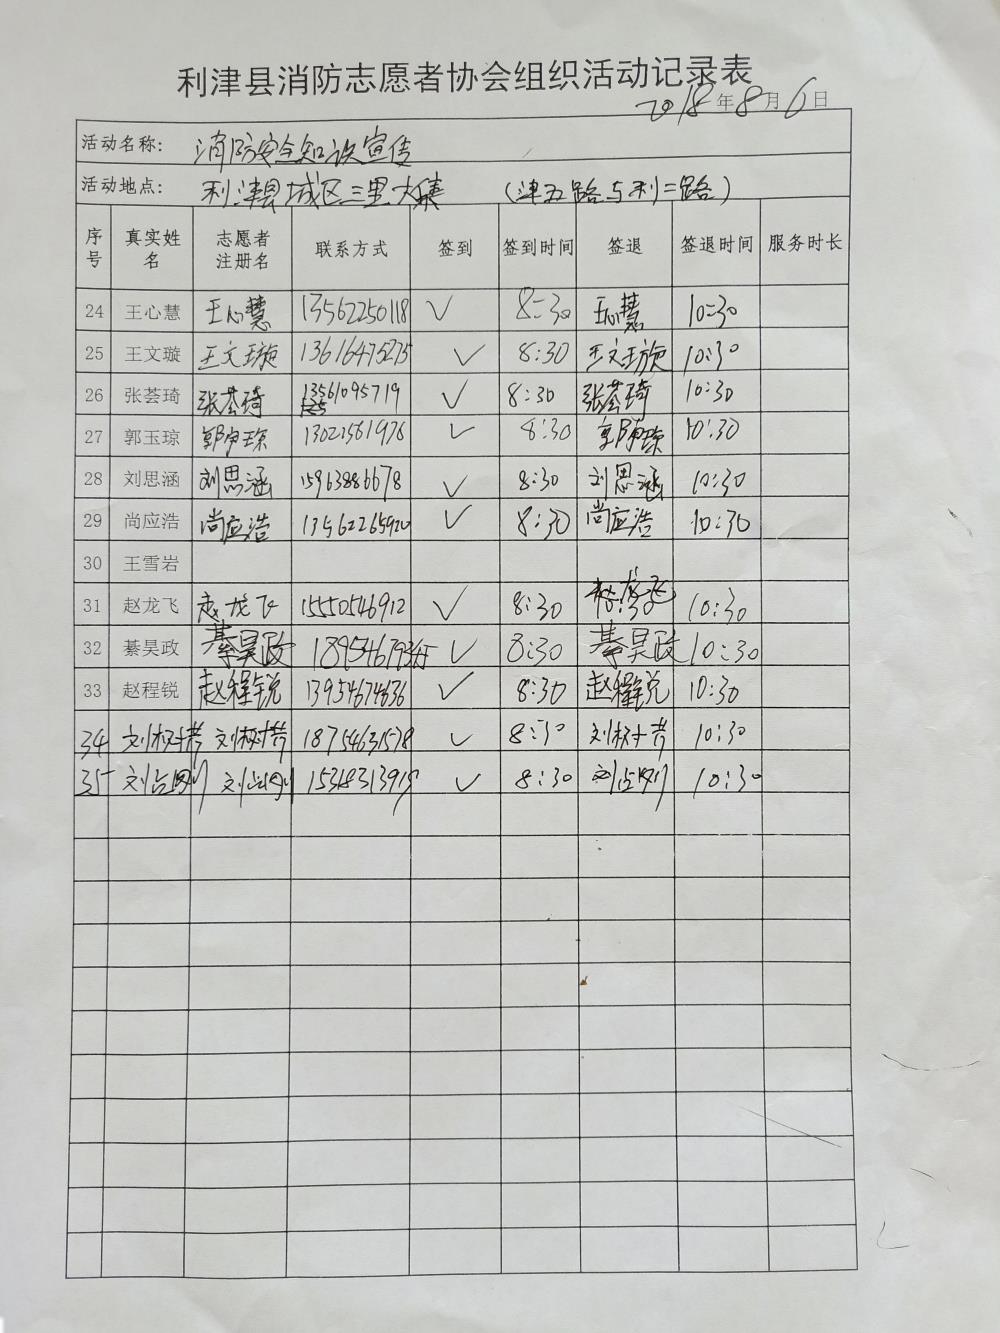 利津县消防志愿者协会组织活动记录表
2018年8月6日
活动名称: 消防安全知识宣传
活动地点: 利津县城区三里大集 (津五路与利二路)
序号 真实姓名 志愿者注册名 联系方式 签到 签到时间 签退 签退时间 服务时长
24 王心慧 王心慧 13562250118 ✓ 8:30 王心慧 10:30
25 王文璇 王文璇 13616475275 ✓ 8:30 王文璇 10:30
26 张荟琦 张荟琦 13561095719 ✓ 8:30 张荟琦 10:30
27 郭玉琼 郭玉琼 13021561976 ✓ 8:30 郭玉琼 10:30
28 刘思涵 刘思涵 15963886678 ✓ 8:30 刘思涵 10:30
29 尚应浩 尚应浩 13562265920 ✓ 8:30 尚应浩 10:30
30 王雪岩
31 赵龙飞 赵龙飞 15550546912 ✓ 8:30 赵龙飞 10:30
32 綦昊政 綦昊政 ✓ 8:30 綦昊政 10:30
33 赵程锐 赵程锐 13954674636 ✓ 8:30 赵程锐 10:30
34 刘树芹 刘树芹 18754631578 ✓ 8:30 刘树芹 10:30
35 刘占刚 刘占刚 ✓ 8:30 刘占刚 10:30